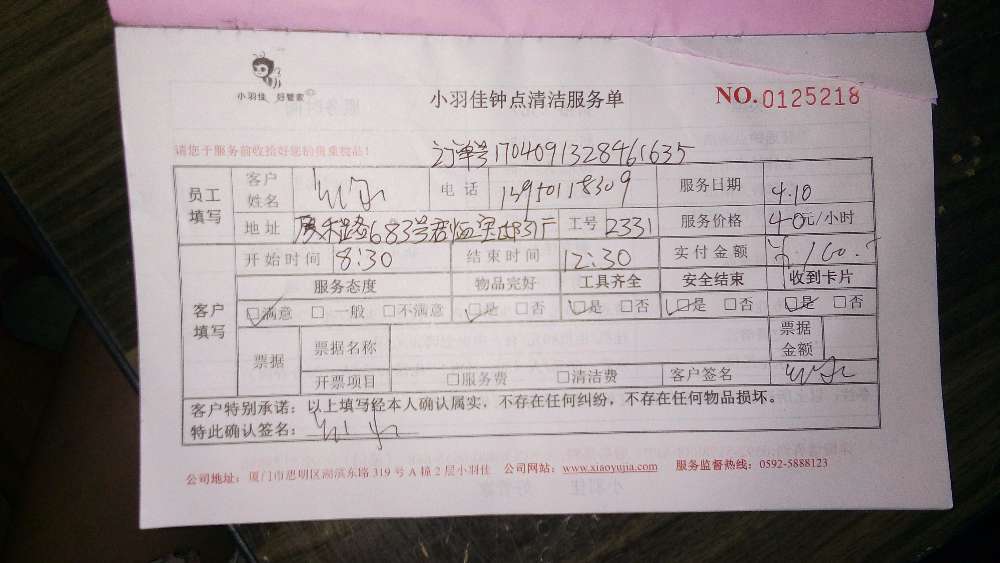 小羽佳 好管家
小羽佳钟点清洁服务单
NO.0125218
请您于服务前收拾好您的贵重物品！
订单号1704091328461635
员工填写 客户姓名 电话 13950118309 服务日期 4.10
地址 683号 工号 2331 服务价格 40元/小时
开始时间 8:30 结束时间 12:30 实付金额 ¥:160.
客户填写 服务态度 物品完好 工具齐全 安全结束 收到卡片
☑满意 □ 一般 □不满意 ☑是 □否 ☑是 □否 ☑是 □否 ☑是 □否
票据 票据名称 票据金额
开票项目 □服务费 □清洁费 客户签名
客户特别承诺：以上填写经本人确认属实，不存在任何纠纷，不存在任何物品损坏。
特此确认签名：
公司地址：厦门市思明区湖滨东路 319 号 A 幢 2 层小羽佳 公司网站：www.xiaoyujia.com 服务监督热线：0592-5888123